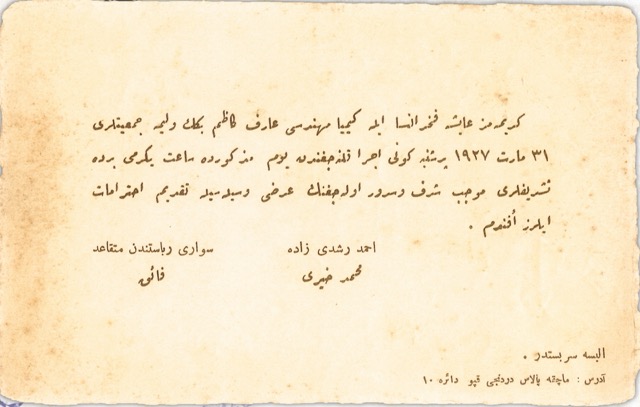 كريمه‌مز عايشه فخرالنسا ايله كيميا مهندسى عارف كاظم بكك وليمه جمعيتلرى
٣١ مارت ١٩٢٧ پرشنبه كونى اجرا قلنه‌جغندن يوم مذكورده ساعت يكرمى برده
تشريفلرى موجب شرف وسرور اوله‌جغنك عرضى وسيله‌سيله تقديم احترامات
ايلرز أفندم .
احمد رشدى زاده سوارى رياستندن متقاعد
محمد خيرى فائق
البسه سربستدر .
آدرس : ماچقه پالاس دردنجى قپو دائره ١٠